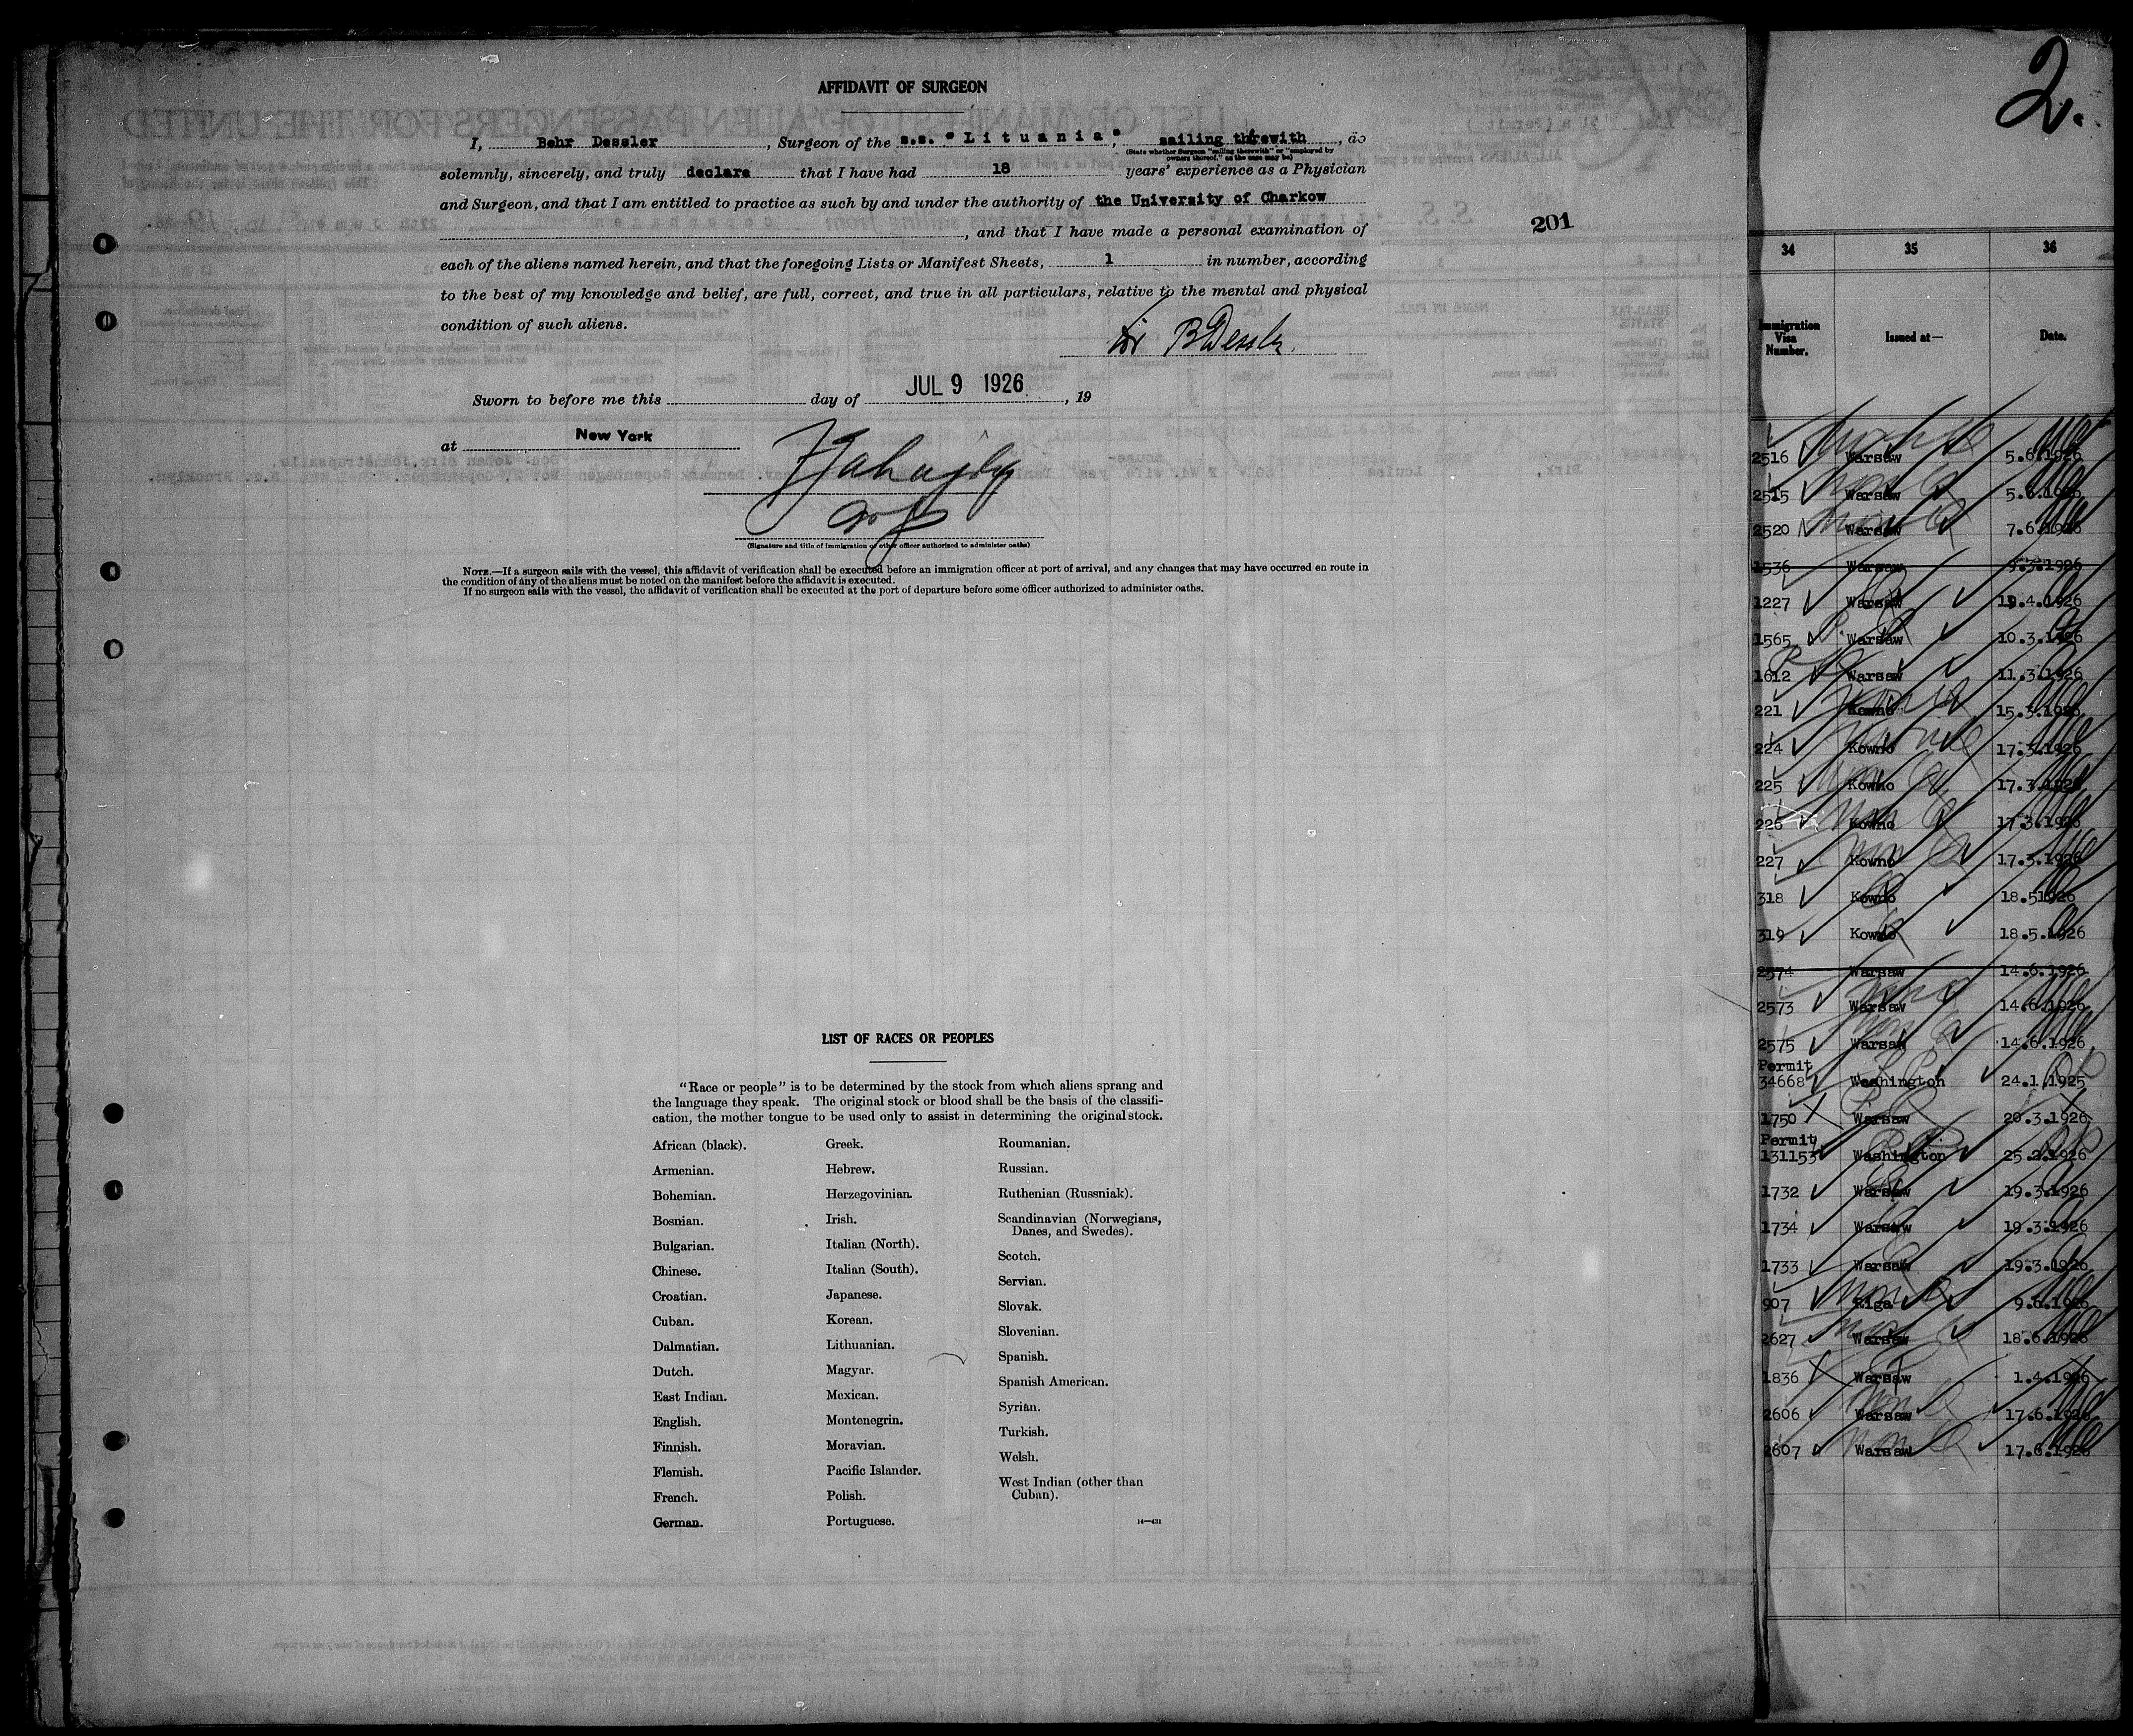 AFFIDAVIT OF SURGEON
I, Behr Dessler, Surgeon of the s.s. "Lituania", sailing therewith, do
(State whether Surgeon "sailing therewith" or "employed by
owners thereof," as the case may be)
solemnly, sincerely, and truly declare that I have had 18 years' experience as a Physician
and Surgeon, and that I am entitled to practice as such by and under the authority of the University of Charkow
, and that I have made a personal examination of
each of the aliens named herein, and that the foregoing Lists or Manifest Sheets, 1 in number, according
to the best of my knowledge and belief, are full, correct, and true in all particulars, relative to the mental and physical
condition of such aliens.
Dr BDessler
Sworn to before me this day of JUL 9 1926, 19
at New York
(Signature and title of immigration or other officer authorized to administer oaths)
NOTE.—If a surgeon sails with the vessel, this affidavit of verification shall be executed before an immigration officer at port of arrival, and any changes that may have occurred en route in
the condition of any of the aliens must be noted on the manifest before the affidavit is executed.
If no surgeon sails with the vessel, the affidavit of verification shall be executed at the port of departure before some officer authorized to administer oaths.
201
LIST OF RACES OR PEOPLES
"Race or people" is to be determined by the stock from which aliens sprang and
the language they speak. The original stock or blood shall be the basis of the classifi-
cation, the mother tongue to be used only to assist in determining the original stock.
African (black).
Armenian.
Bohemian.
Bosnian.
Bulgarian.
Chinese.
Croatian.
Cuban.
Dalmatian.
Dutch.
East Indian.
English.
Finnish.
Flemish.
French.
German.
Greek.
Hebrew.
Herzegovinian.
Irish.
Italian (North).
Italian (South).
Japanese.
Korean.
Lithuanian.
Magyar.
Mexican.
Montenegrin.
Moravian.
Pacific Islander.
Polish.
Portuguese.
Roumanian.
Russian.
Ruthenian (Russniak).
Scandinavian (Norwegians,
Danes, and Swedes).
Scotch.
Servian.
Slovak.
Slovenian.
Spanish.
Spanish American.
Syrian.
Turkish.
Welsh.
West Indian (other than
Cuban).
14—431
2.
34 35 36
Immigration
Visa
Number.
Issued at—
Date.
2516 Warsaw 5.6.1926
2515 Warsaw 5.6.1926
2520 Warsaw 7.6.1926
1536 Warsaw 9.3.1926
1227 Warsaw 19.4.1926
1565 Warsaw 10.3.1926
1612 Warsaw 11.3.1926
221 Kowno 15.3.1926
224 Kowno 17.3.1926
225 Kowno 17.3.1926
226 Kowno 17.3.1926
227 Kowno 17.3.1926
318 Kowno 18.51926
319 Kowno 18.5.1926
2574 Warsaw 14.6.1926
2573 Warsaw 14.6.1926
2575 Warsaw 14.6.1926
Permit
34668 Washington 24.1.1925
1750 Warsaw 20.3.1926
Permit
131153 Washington 25.2.1926
1732 Warsaw 19.3.1926
1734 Warsaw 19.3.1926
1733 Warsaw 19.3.1926
907 Riga 9.6.1926
2627 Warsaw 18.6.1926
1836 Warsaw 1.4.1926
2606 Warsaw 17.6.1926
2607 Warsaw 17.6.1926